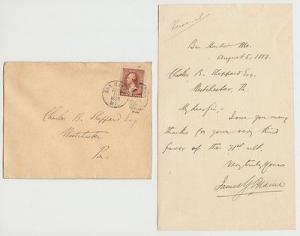 Charles B. Sheppard Esq.
Westchester
Pa.
Bar Harbor Me.
August 5, 1884.
Charles B. Sheppard Esq.
Westchester, Pa
My dear Sir:
I owe you many
thanks for your very kind
favor of the 31st ult.
Very truly yours
James G. Blaine